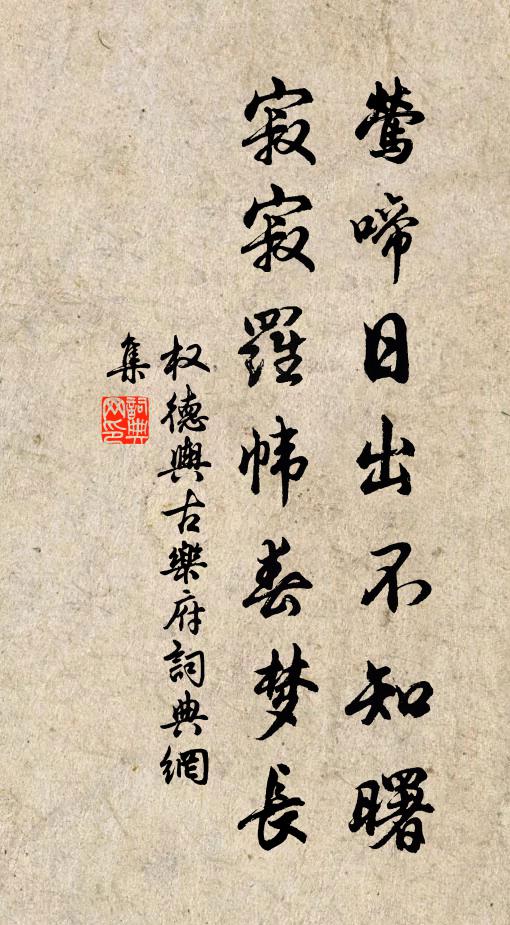 莺啼日出不知曙
寂寂羅帏春梦長
权德輿古樂府詞典網
集
詞典网印